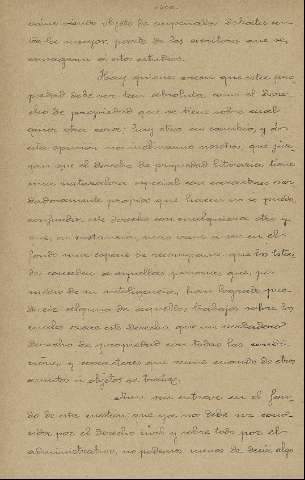 viene siendo objeto de empeñados debates en-
tre la mayor parte de los escritores que se
consagran a estos estudios.
Hay quienes creen que esta pro-
piedad debe ser tan absoluta como el dere-
cho de propiedad que se tiene sobre cual
quier otra cosa: hay otros en cambio, y á
esta opinion nos inclinamos nosotros, que juz-
gan que el derecho de propiedad literaria tiene
una naturaleza especial con caracteres ver
daderamente propios que hacen no se pueda
confundir este derecho con cualquiera otro y
que, en sustancia, no viene á ser en el
fondo mas especie de recompensa que los Esta-
dos conceden á aquellas personas que, por
medio de su inteligencia, han logrado pro-
ducir alguno de aquellos trabajos sobre los
cuales recae este derecho que un verdadero
derecho de propiedad con todas las condi-
ciones y caracteres que reune cuando de otros
asuntos ú objetos se trata.
Aun sin entrar en el fon-
do de esta cuestion, que ya no debe ser consi-
derada por el derecho civil y sobre todo por el
administrativo, no podemos menos de decir algo